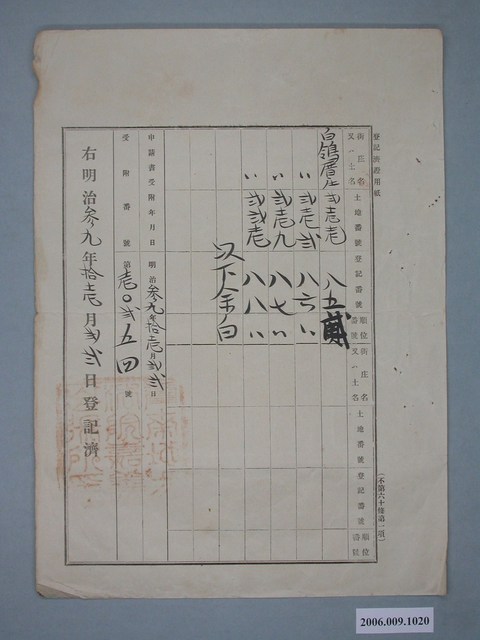 登記済證用紙
(不第六十條第一項)
街庄名又ハ土名
土地番號
登記番號
順位番號
街庄名又ハ土名
土地番號
登記番號
順位番號
白鴒厝庄 弍壱壱 八五 貳
〃 弍壱弍 八六 〃
〃 弍壱九 八七 〃
〃 弍弍壱 八八 〃
以下余白
申請書受附年月日 明治参九年拾壱月弍弍日
受附番號 第壱〇弍五四號
右明治参九年拾壱月弍弍日登記濟
2006.009.1020